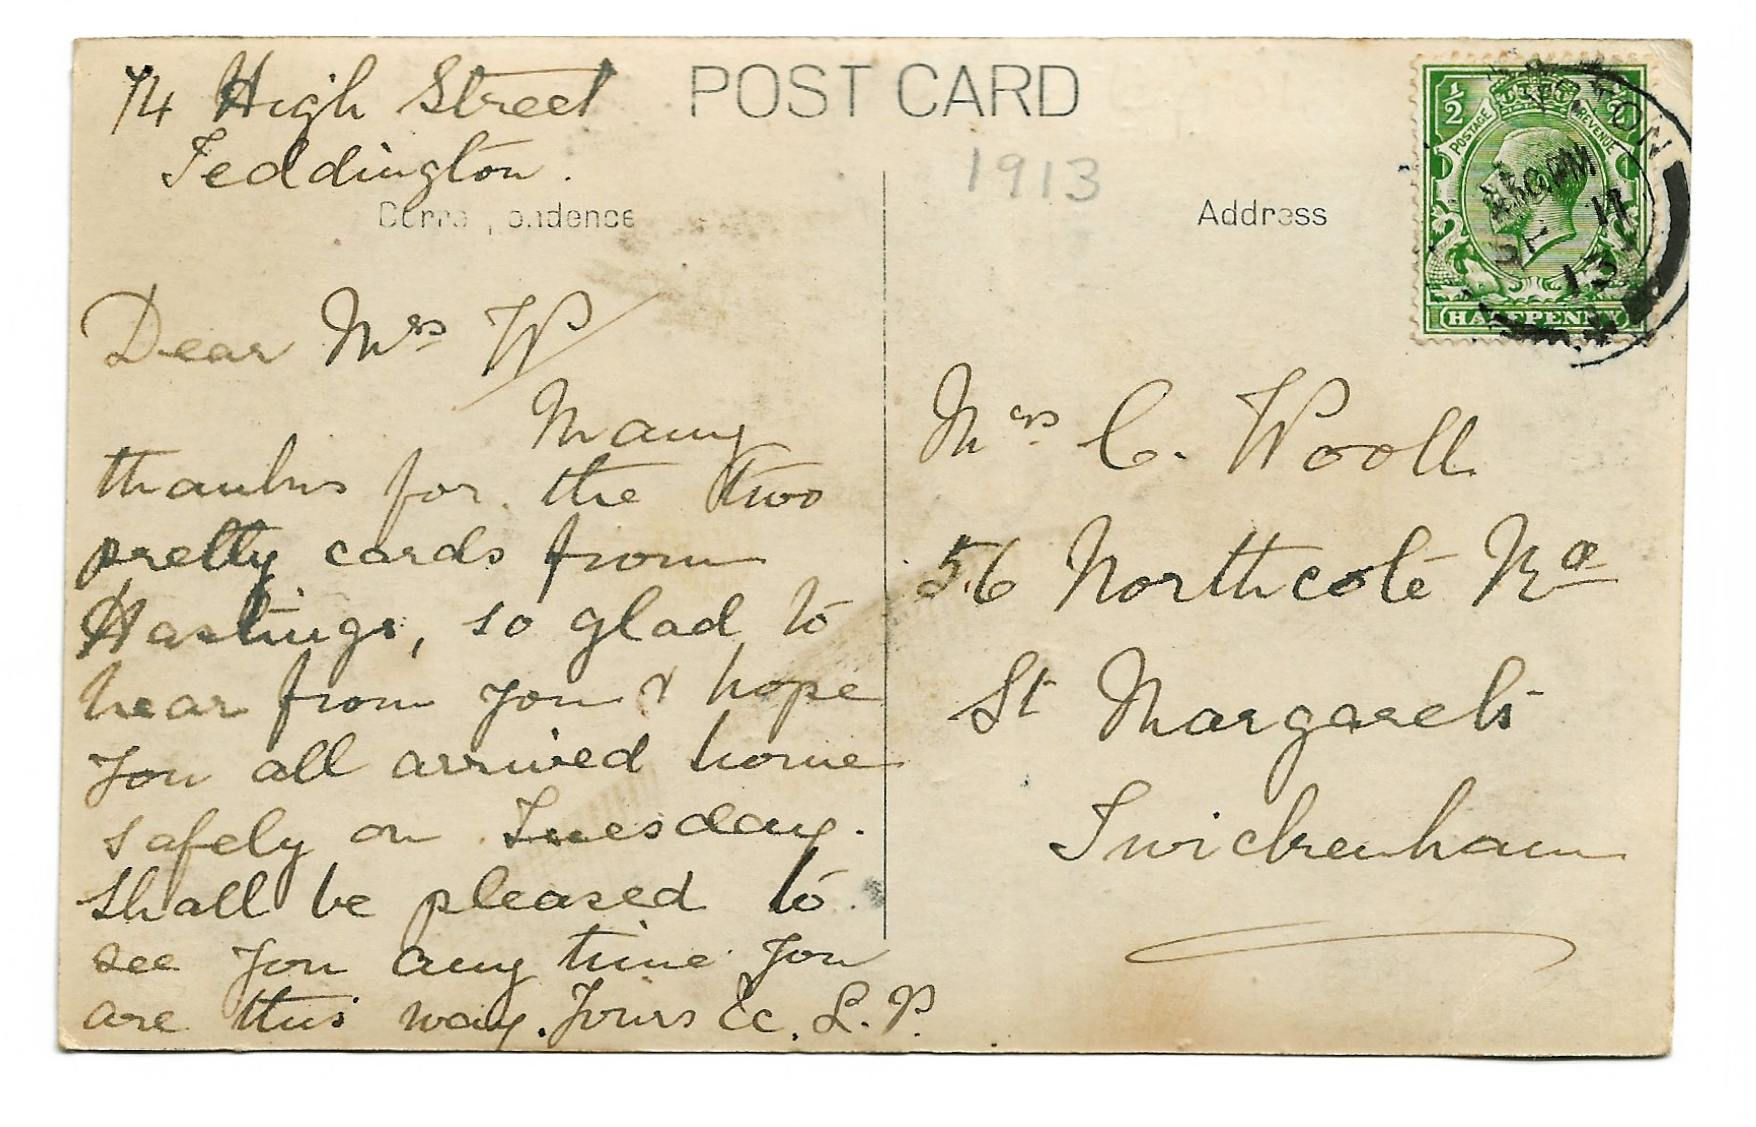 74 High Street
Teddington.
POST CARD
1913
Correspondence
Address
Dear Mrs W/
Many
thanks for the two
pretty cards from
Hastings, so glad to
hear from you & hope
you all arrived home
safely on Tuesday.
shall be pleased to
see you any time you
are this way. Yours &c. L. P.
Mrs C. Wooll
56 Northcote Rd
St Margarets
Twickenham
1/2
POSTAGE
REVENUE
HALFPENNY
PM
SE 11
13